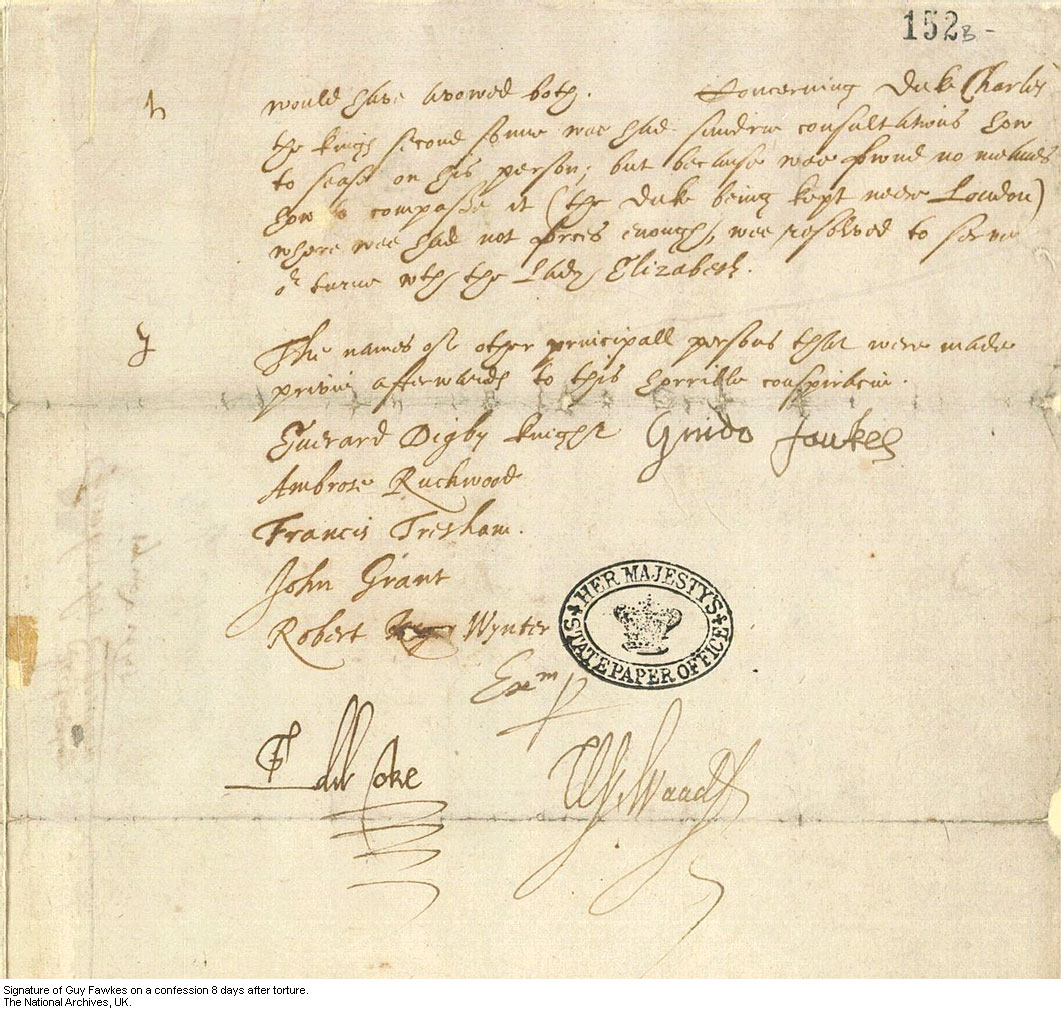 152B -
h would have avowed both. Concerning Duke Charles
the kings second sonne wee had sundrie consultations how
to sease on his person, but because wee fownd no meanes
how to compasse it (the duke being kept neere London)
where wee had not forces enough, wee resolved to serve
or turne wth the Lady Elizabeth.
J The names of other principall persons that were made
privie afterwards to this horrible conspiracie.
Everard Digby knight Guido fawkes
Ambrose Ruckwood
Francis Tresham.
John Grant
Robert Wynter
HER MAJESTY'S
STATE PAPER OFFICE
Exm p
Edw Coke W Waad
Signature of Guy Fawkes on a confession 8 days after torture.
The National Archives, UK.